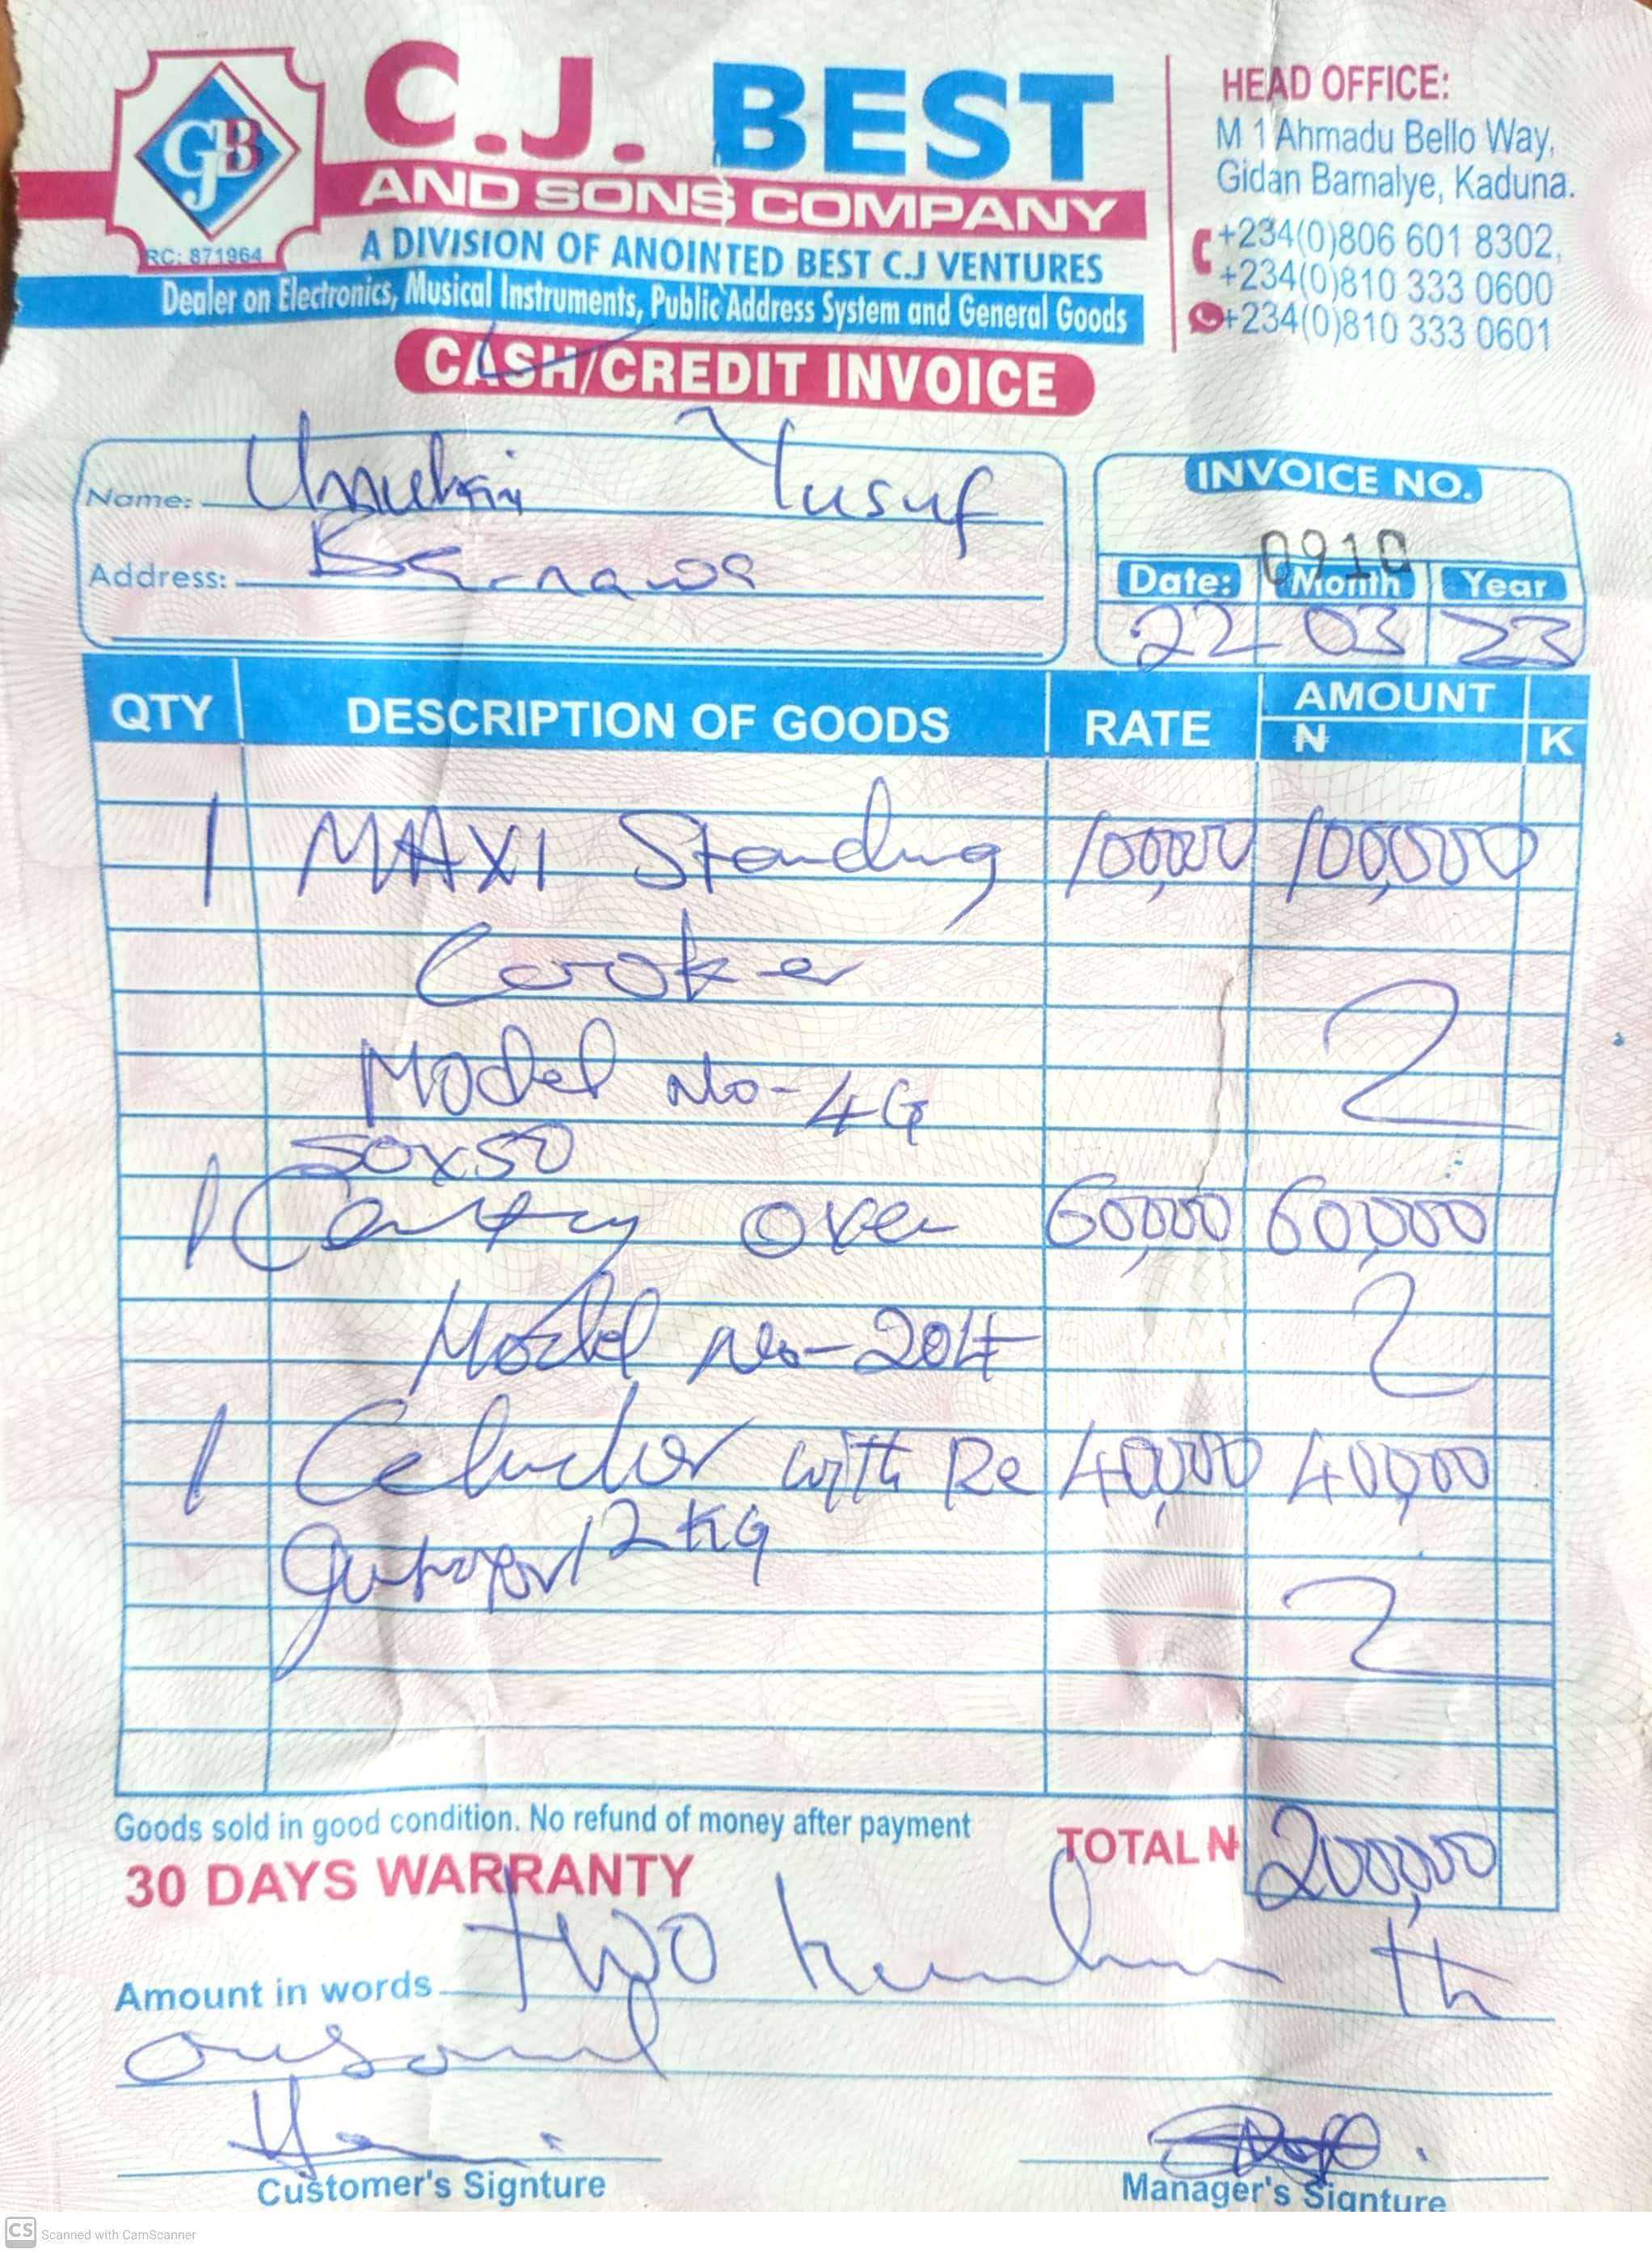 C.J. BEST
AND SONS COMPANY
A DIVISION OF ANOINTED BEST C.J VENTURES
Dealer on Electronics, Musical Instruments, Public Address System and General Goods
GJB
RC: 871964
HEAD OFFICE:
M 1 Ahmadu Bello Way,
Gidan Bamalye, Kaduna.
+234(0)806 601 8302,
+234(0)810 333 0600
+234(0)810 333 0601
CASH/CREDIT INVOICE
Name: Yusuf
Address:
INVOICE NO.
0910
Date: Month Year
22 03 23
QTY DESCRIPTION OF GOODS RATE AMOUNT
N K
1 MAXI Standing 100,000 100,000
Cooker
Model No-4G
50x50
1 Century Oven 60,000 60,000
Model No-204
1 with Re 40,000 40,000
12KG
Goods sold in good condition. No refund of money after payment
30 DAYS WARRANTY
TOTAL N 200,000
Amount in words two hundred th
ousand
Customer's Signture
Manager's Signture
CS Scanned with CamScanner